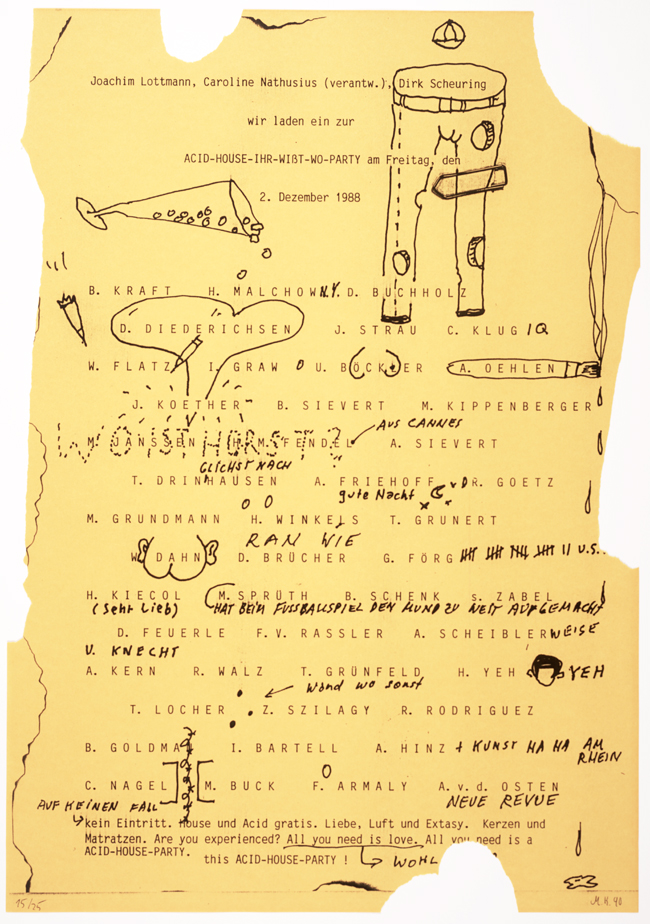 Joachim Lottmann, Caroline Nathusius (verantw.), Dirk Scheuring
wir laden ein zur
ACID-HOUSE-IHR-WIßT-WO-PARTY am Freitag, den
2. Dezember 1988
B. KRAFT H. MALCHOW N.Y. D. BUCHHOLZ
D. DIEDERICHSEN J. STRAU C. KLUG IQ
W. FLATZ I. GRAW U. BÖCKLER A. OEHLEN
J. KOETHER B. SIEVERT M. KIPPENBERGER
WO IST HORST?
AUS CANNES
M. JANSSEN H.M. FENDEL A. SIEVERT
GLICHST NACH
T. DRINHAUSEN A. FRIEHOFF v. DR. GOETZ
gute Nacht
M. GRUNDMANN H. WINKELS T. GRUNERT
RAN WIE
W. DAHN D. BRÜCHER G. FÖRG U.S..
H. KIECOL M. SPRÜTH B. SCHENK s. ZABEL
(sehr Lieb) HAT BEIM FUSSBALLSPIEL DEN MUND ZU WEIT AUFGEMACHT
D. FEUERLE F.V. RASSLER A. SCHEIBLER WEISE
U. KNECHT
A. KERN R. WALZ T. GRÜNFELD H. YEH YEH
Wand wo sonst
T. LOCHER Z. SZILAGY R. RODRIGUEZ
B. GOLDMA I. BARTELL A. HINZ + KUNST HA HA AM
RHEIN
C. NAGEL M. BUCK F. ARMALY A.v.d. OSTEN
AUF KEINEN FALL NEUE REVUE
kein Eintritt. House und Acid gratis. Liebe, Luft und Extasy. Kerzen und
Matratzen. Are you experienced? All you need is love. All you need is a
ACID-HOUSE-PARTY. this ACID-HOUSE-PARTY ! WOHL
15/25 M.K. 90